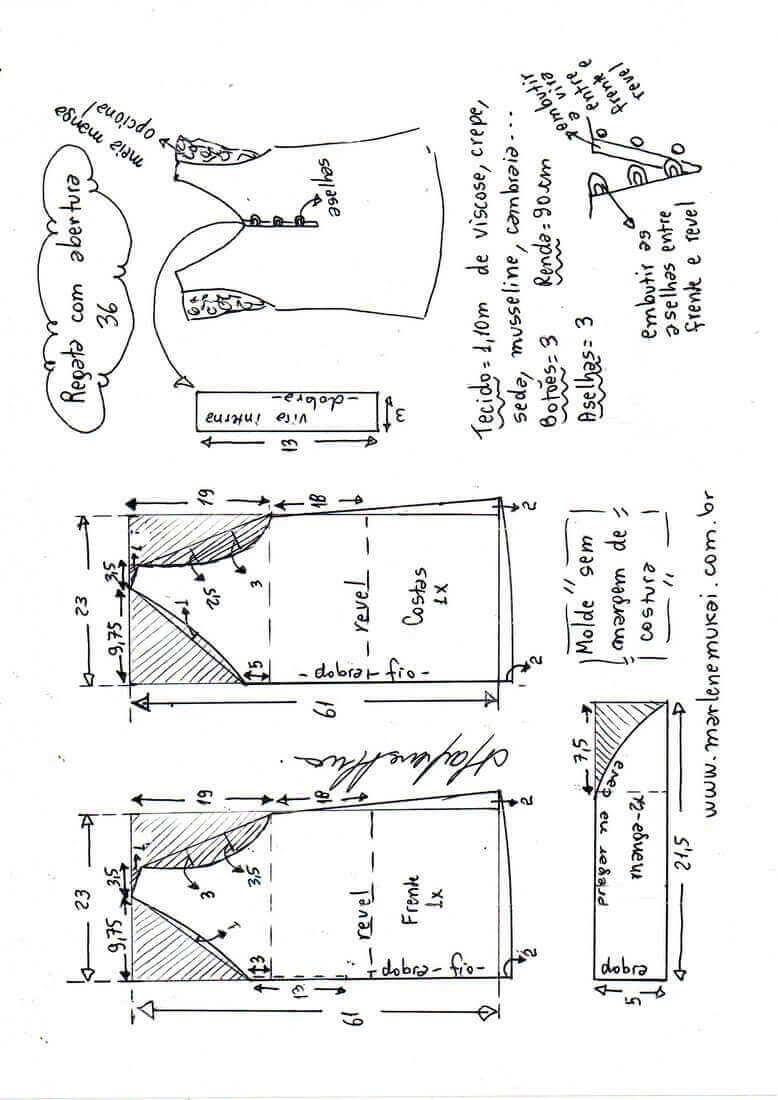 Regata com abertura
36
meia manga
opcional
aselhas
13
vira interna
-dobra-
3
Tecido = 1,10m de viscose, crepe,
seda, musseline, cambraia...
Botões = 3 Renda = 90cm
Aselhas = 3
embutir
a vira
entre
frente e
revel
embutir as
aselhas entre
frente e revel
23
9,75
3,5
1
19
18
1
3
3,5
3
13
61
revel
Frente
1x
-fio-dobra-
2
2
23
9,75
3,5
1
19
18
1
2,5
3
5
61
revel
Costas
1x
-fio-dobra-
2
2
7,5
pregar na cava
manga-2x
dobra
5
21,5
Molde sem
margem de
costura
www.marlenemukai.com.br